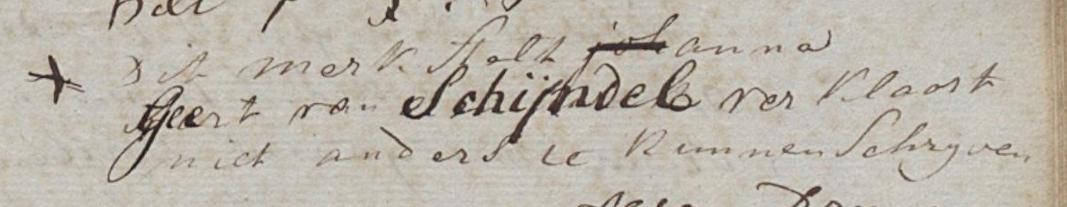 dit merk stelt johanna
Geert van Schijndel ver klaart
niet anders te kunnen Schryven